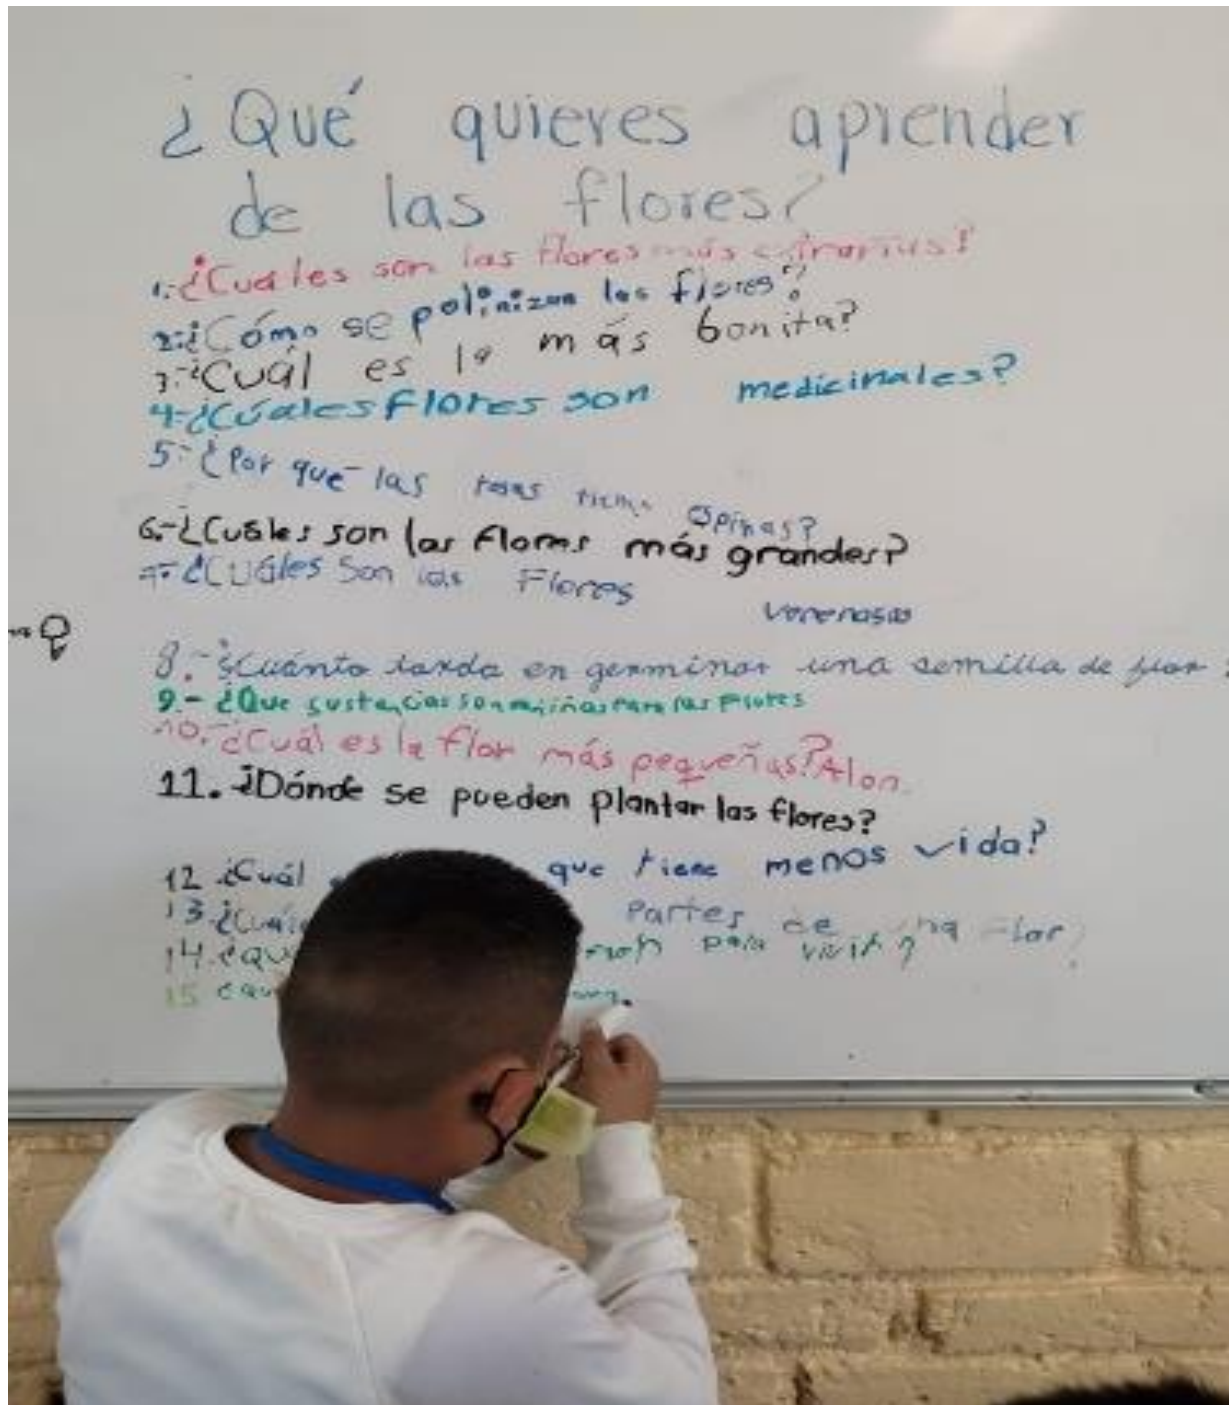 ¿Qué quieres aprender
de las flores?
1.-¿Cuales son las flores más extrañas?
2.-¿Cómo se polinizan las flores?
3.-¿Cuál es la más bonita?
4-¿Cúales flores son medicinales?
5-¿Por que las rosas tienen espinas?
6.-¿Cuáles son las flores más grandes?
7.-¿Cuáles Son las Flores venenosas
8.-¿Cuánto tarda en germinar una semilla de flor
9.- ¿Que sustancias son para las Flores
10.-¿Cuál es la flor más pequeñas? Alon.
11. ¿Dónde se pueden plantar las flores?
12 ¿Cuál que tiene menos vida?
13.¿ Partes de una Flor?
14.¿ para vivir?
15